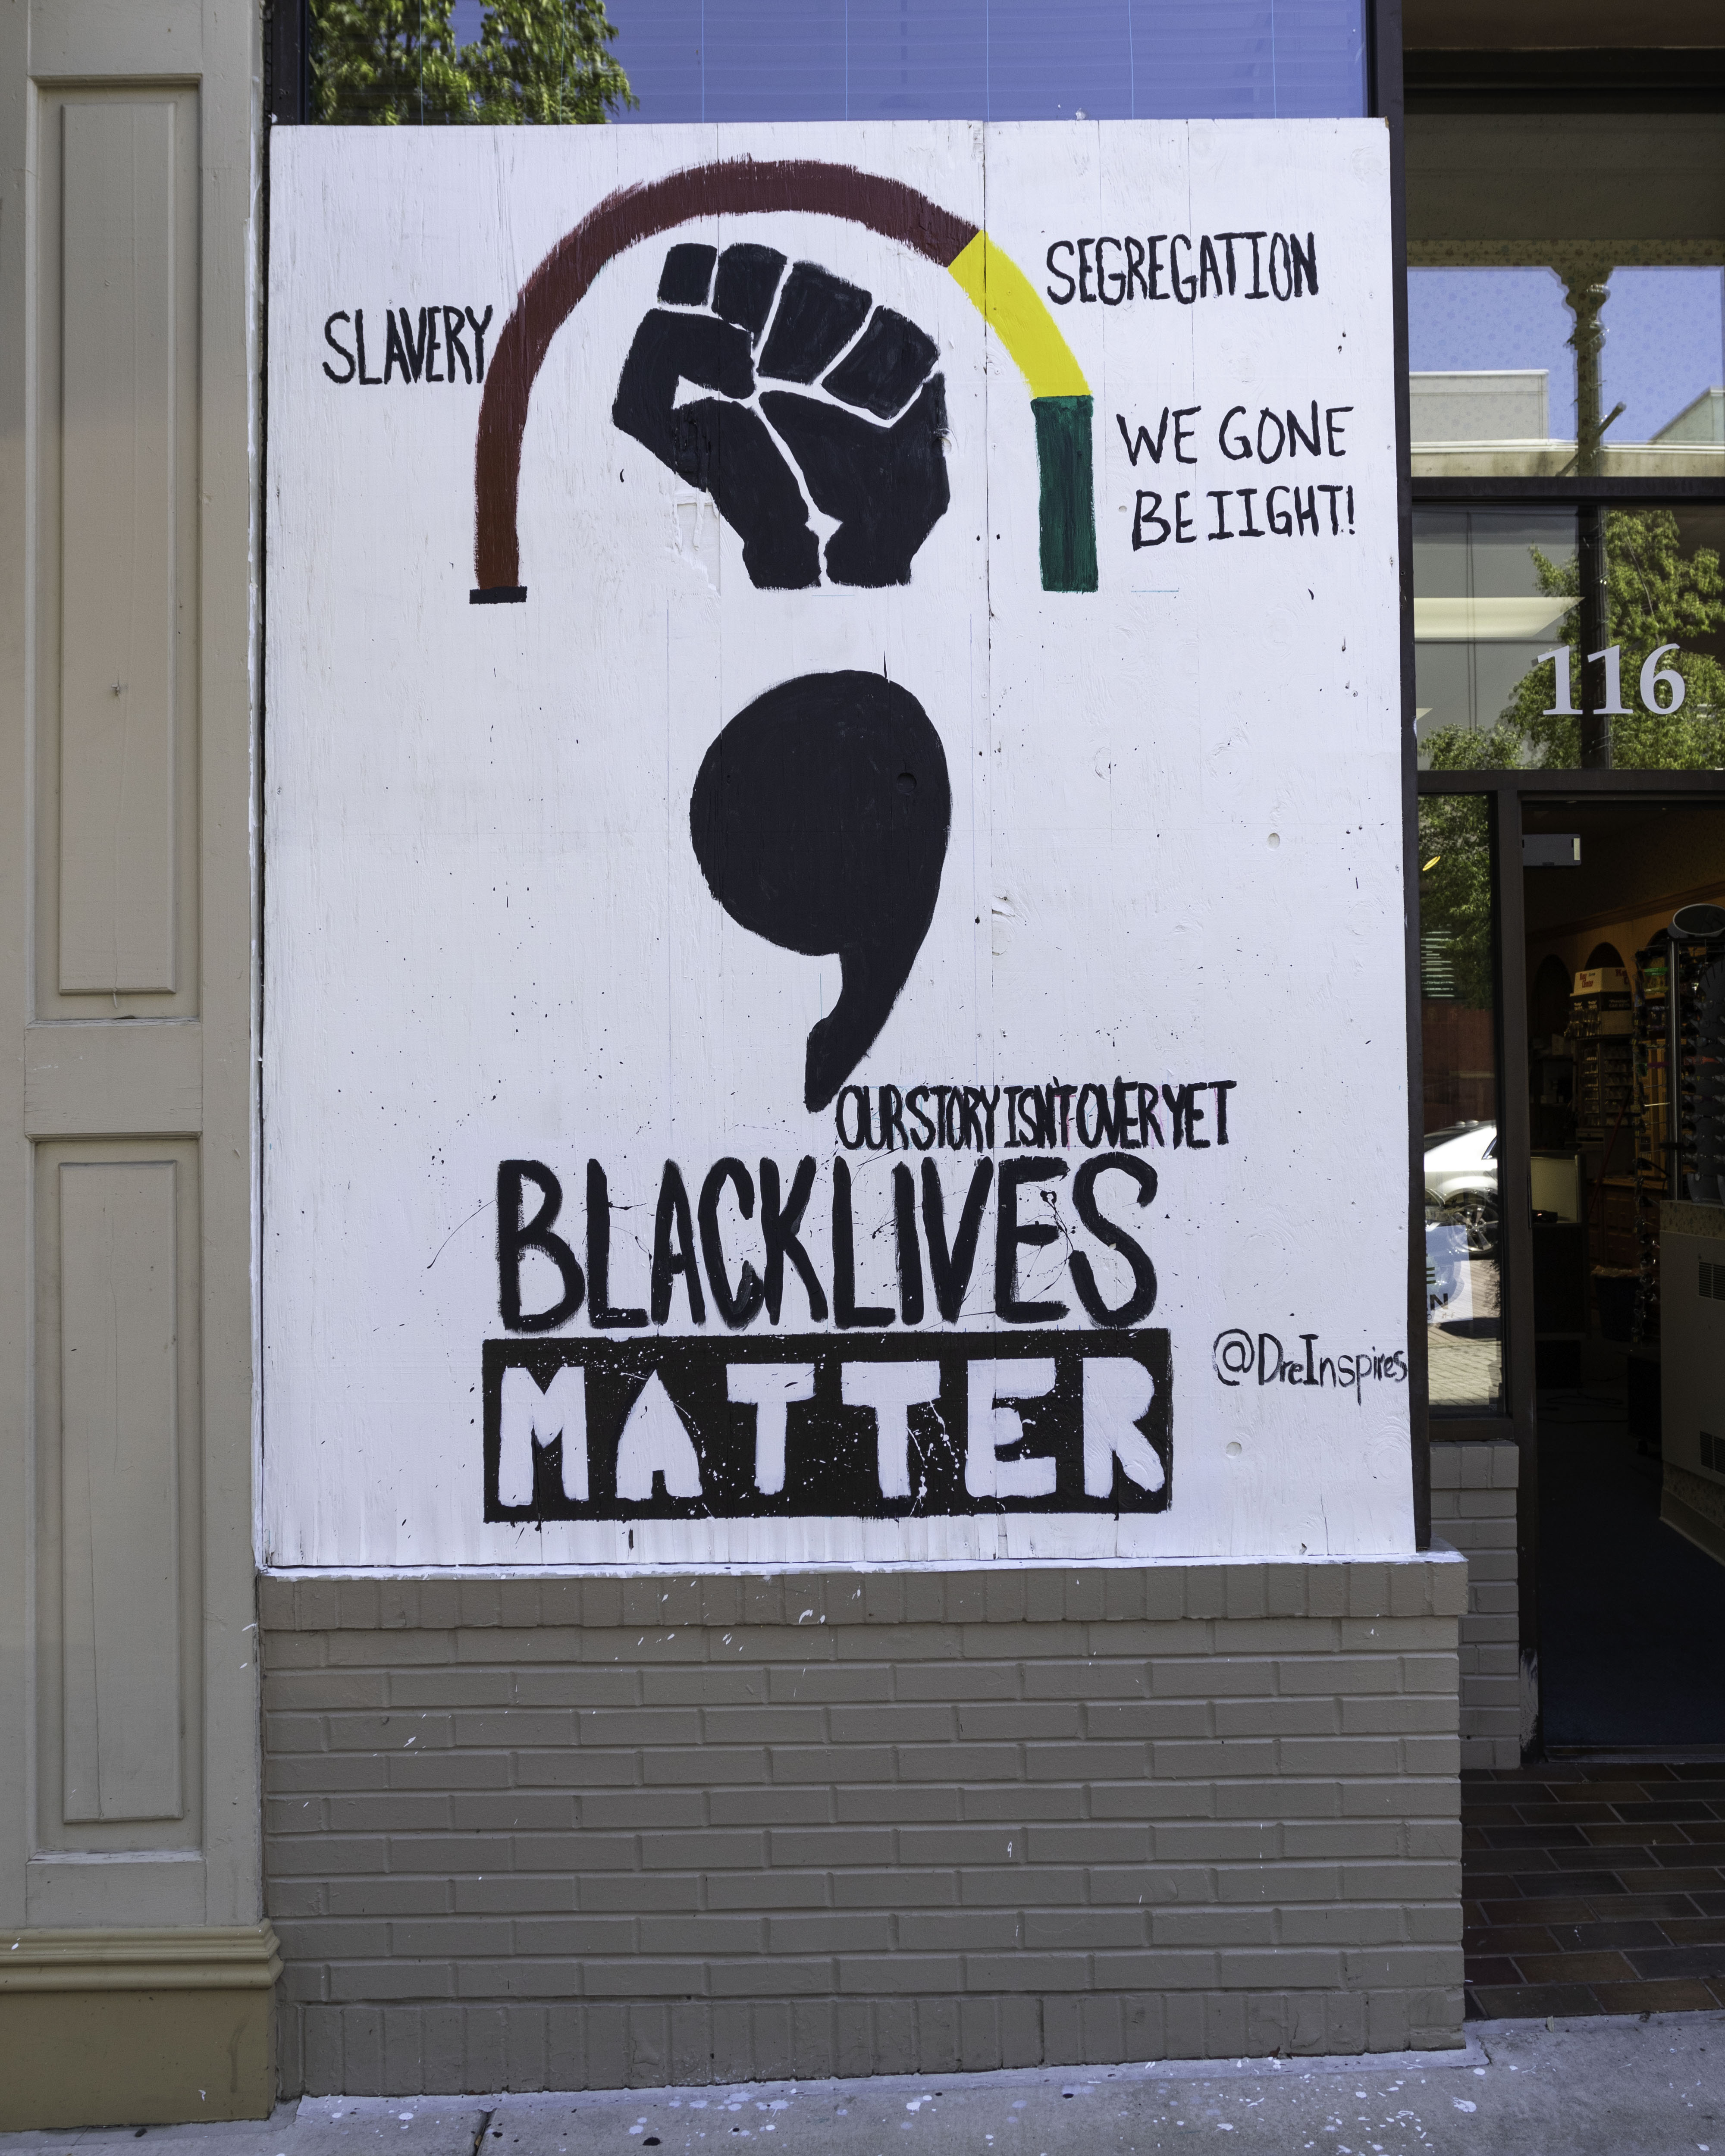 SLAVERY
SEGREGATION
WE GONE
BE IIGHT!
116
OUR STORY ISN'T OVER YET
BLACK LIVES
MATTER
@DreInspires